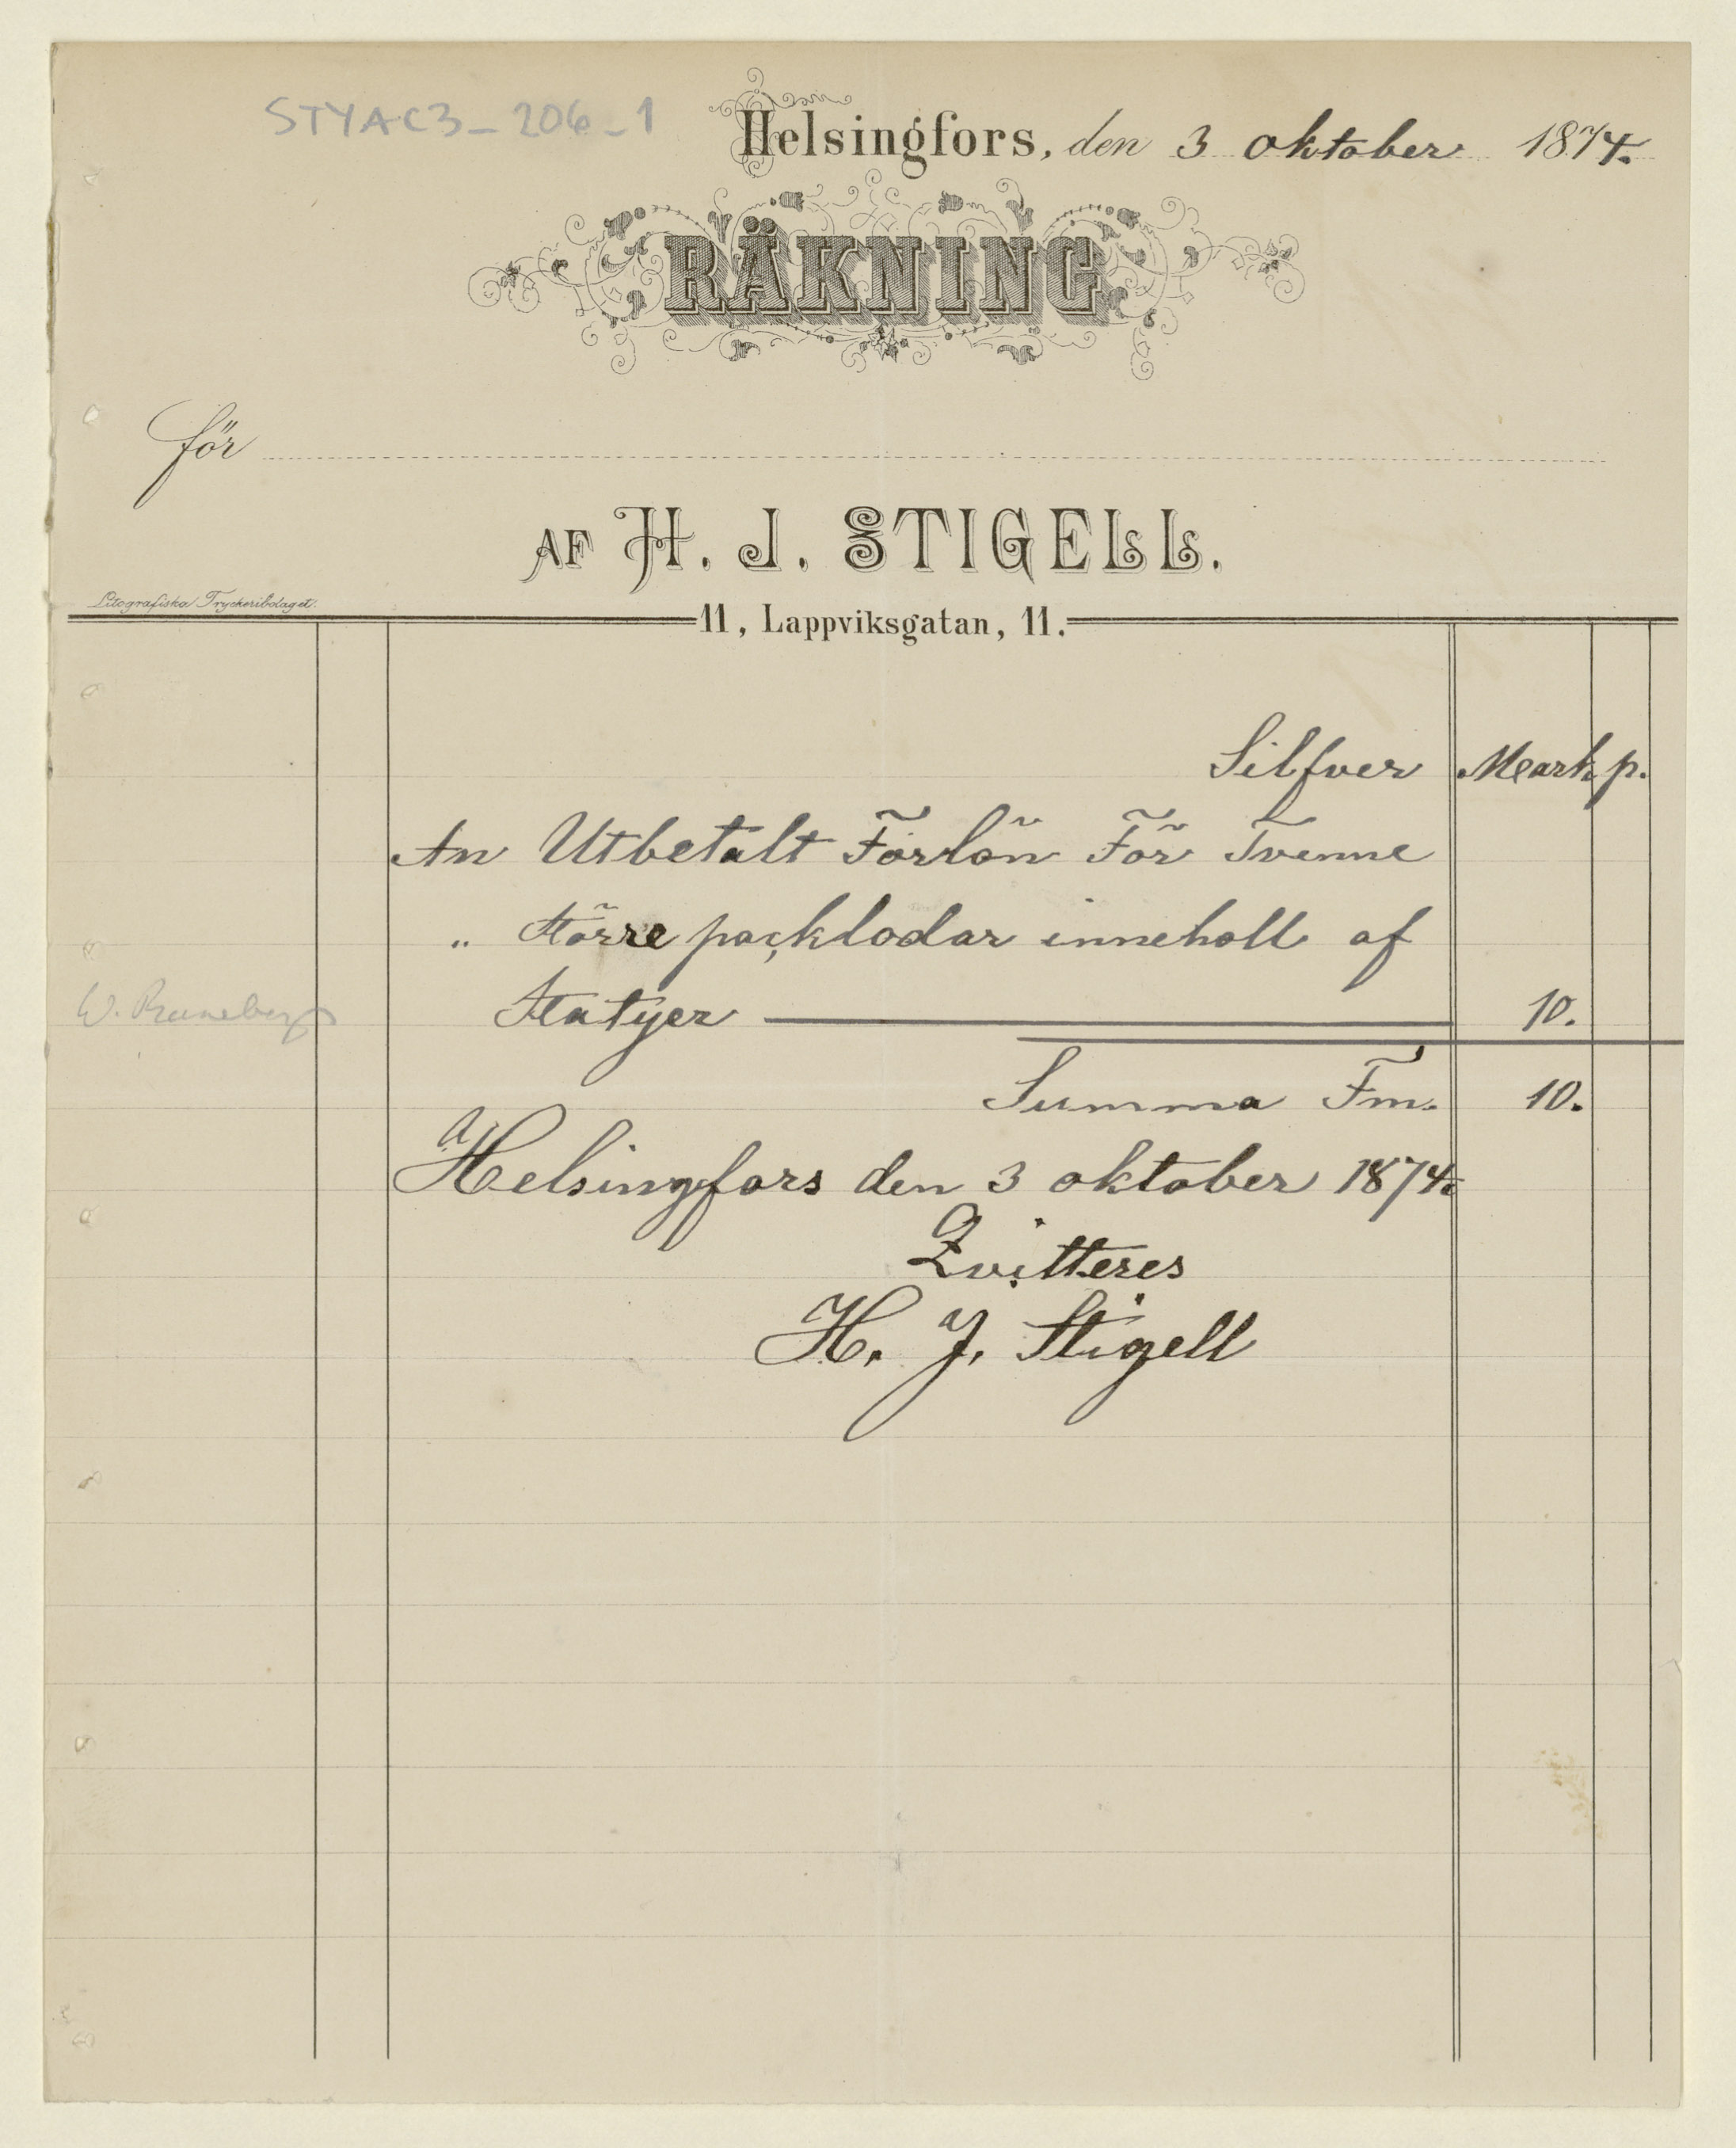 STYAC3_206_1
Helsingfors, den 3 oktober 1874.
RÄKNING
för
AF H. J. STIGELL.
Litografiska Tryckeribolaget.
11, Lappviksgatan, 11.
Silfver Mark p.
An Utbetalt Forlön För Tvenne
„ större packlodar innehall af
W. Runeberg Statyer 10.
Summa Fm. 10.
Helsingfors den 3 oktober 1874
Qvitteres
H. J. Stigell